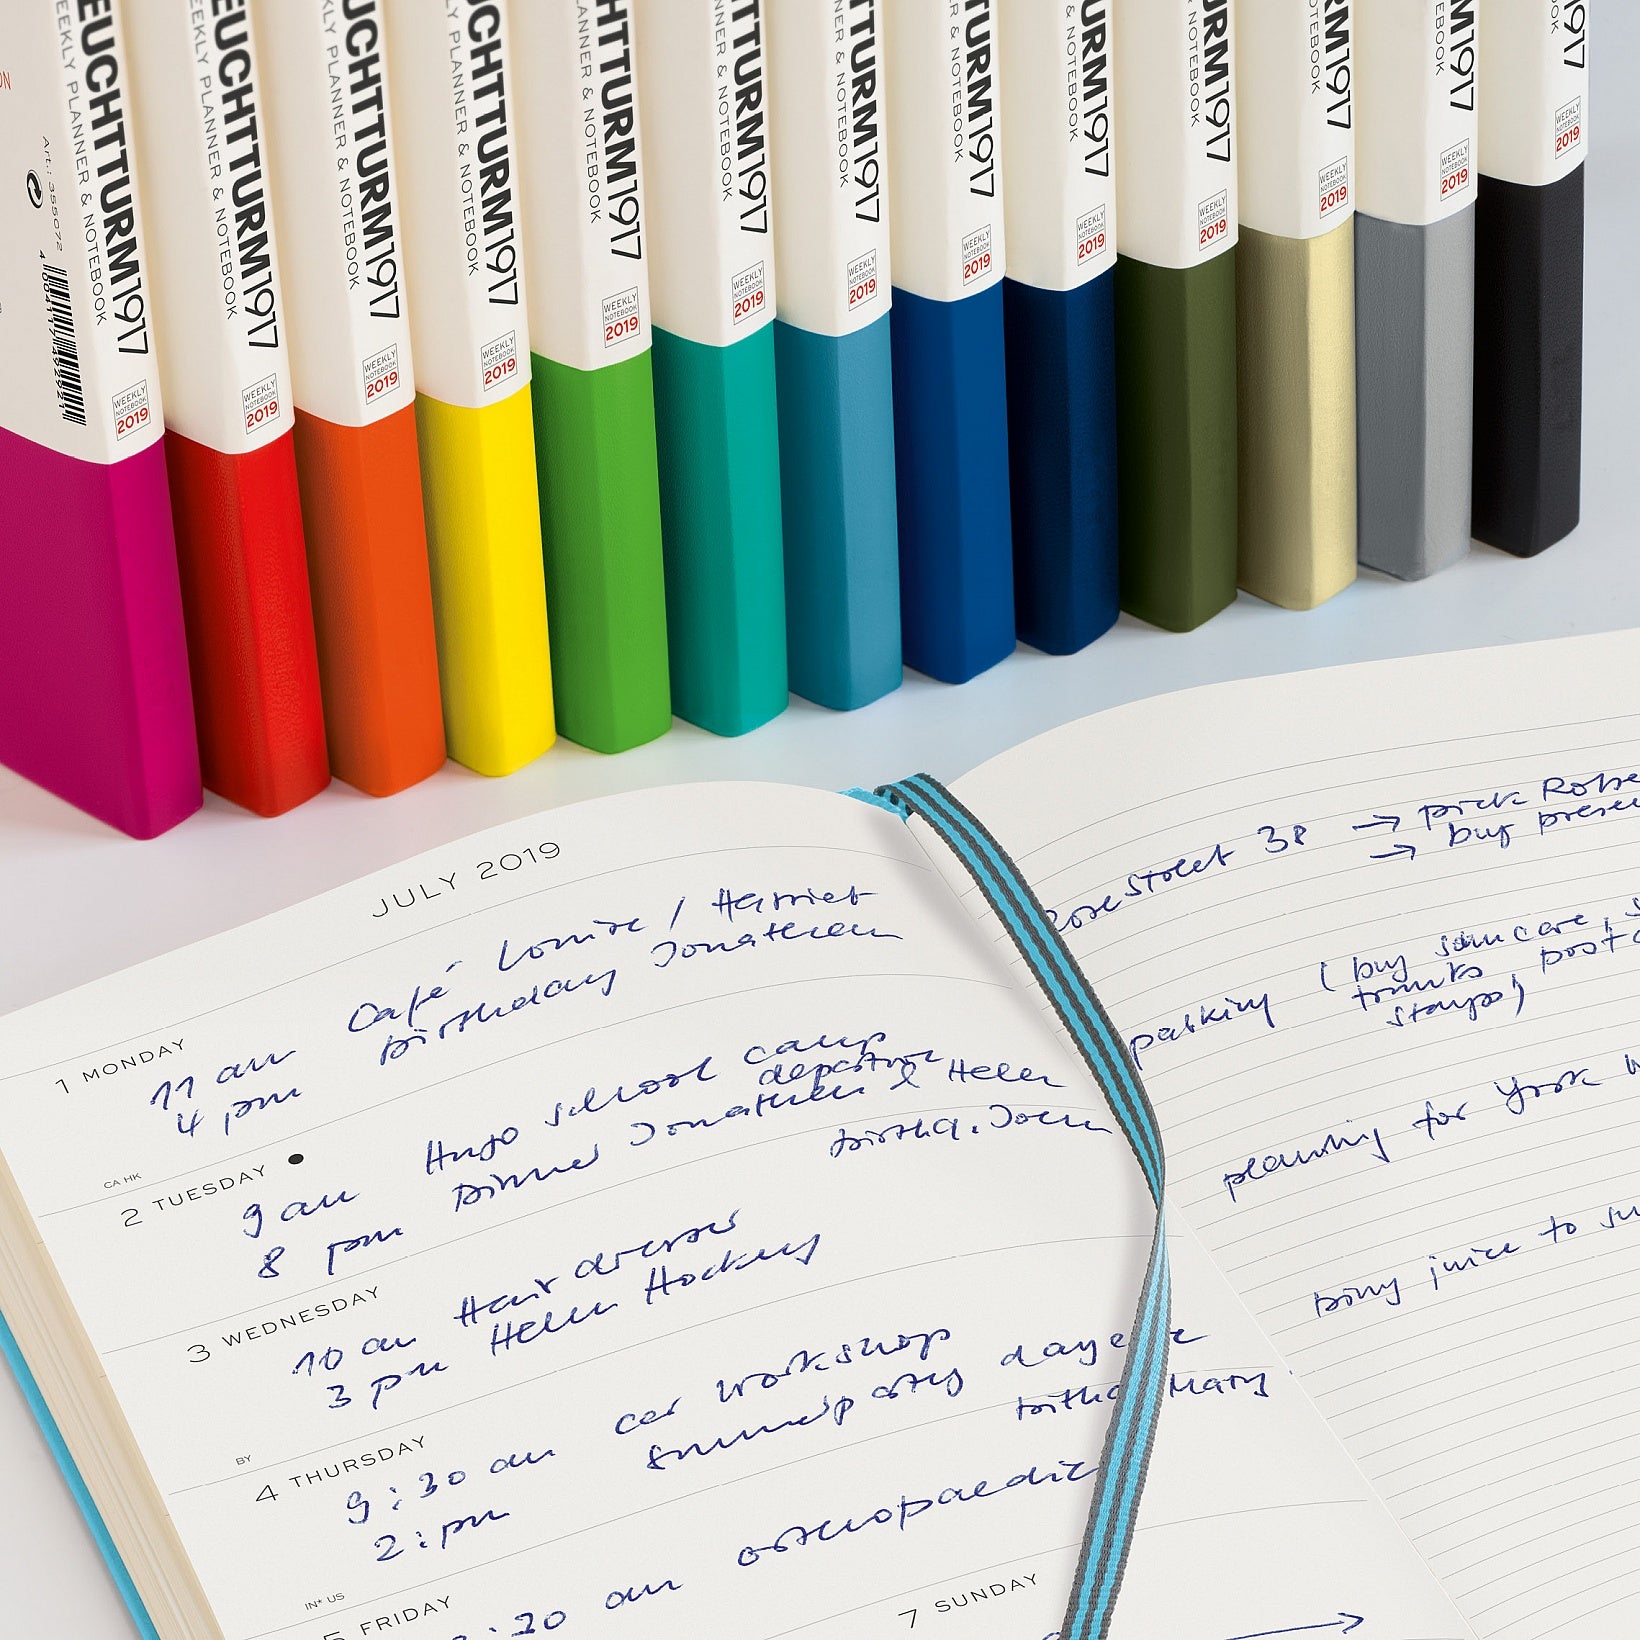 ON
EUCHTTURM1917
EEKLY PLANNER & NOTEBOOK
Art.: 355072
WEEKLY
NOTEBOOK
2019
EUCHTTURM1917
EEKLY PLANNER & NOTEBOOK
WEEKLY
NOTEBOOK
2019
UCHTTURM1917
KLY PLANNER & NOTEBOOK
WEEKLY
NOTEBOOK
2019
UCHTTURM1917
LY PLANNER & NOTEBOOK
WEEKLY
NOTEBOOK
2019
HTTURM1917
ANNER & NOTEBOOK
WEEKLY
NOTEBOOK
2019
TTURM1917
NNER & NOTEBOOK
WEEKLY
NOTEBOOK
2019
TURM1917
NER & NOTEBOOK
WEEKLY
NOTEBOOK
2019
TURM1917
R & NOTEBOOK
WEEKLY
NOTEBOOK
2019
URM1917
& NOTEBOOK
WEEKLY
NOTEBOOK
2019
RM1917
NOTEBOOK
WEEKLY
NOTEBOOK
2019
RM1917
NOTEBOOK
WEEKLY
NOTEBOOK
2019
M1917
EBOOK
WEEKLY
NOTEBOOK
2019
1917
BOOK
WEEKLY
NOTEBOOK
2019
JULY 2019
1 MONDAY
11 am Café Louise / Harriet
4 pm Birthday Jonathan
CA HK
2 TUESDAY
9 am Hugo school camp
departure
8 pm Dinner Jonathan & Helen
birthd. Joen
3 WEDNESDAY
10 am Hair dresser
3 pm Helen Hockey
BY
4 THURSDAY
9:30 am car workshop
2:pm summerparty dayc
birthd Mary
IN* US
5 FRIDAY
:30 am orthopaedic
7 SUNDAY
Rose Street 38 → pick Robe
→ buy presen
packing ( buy suncare, s
trunks post c
stamps)
planning for York w
bring juice to su